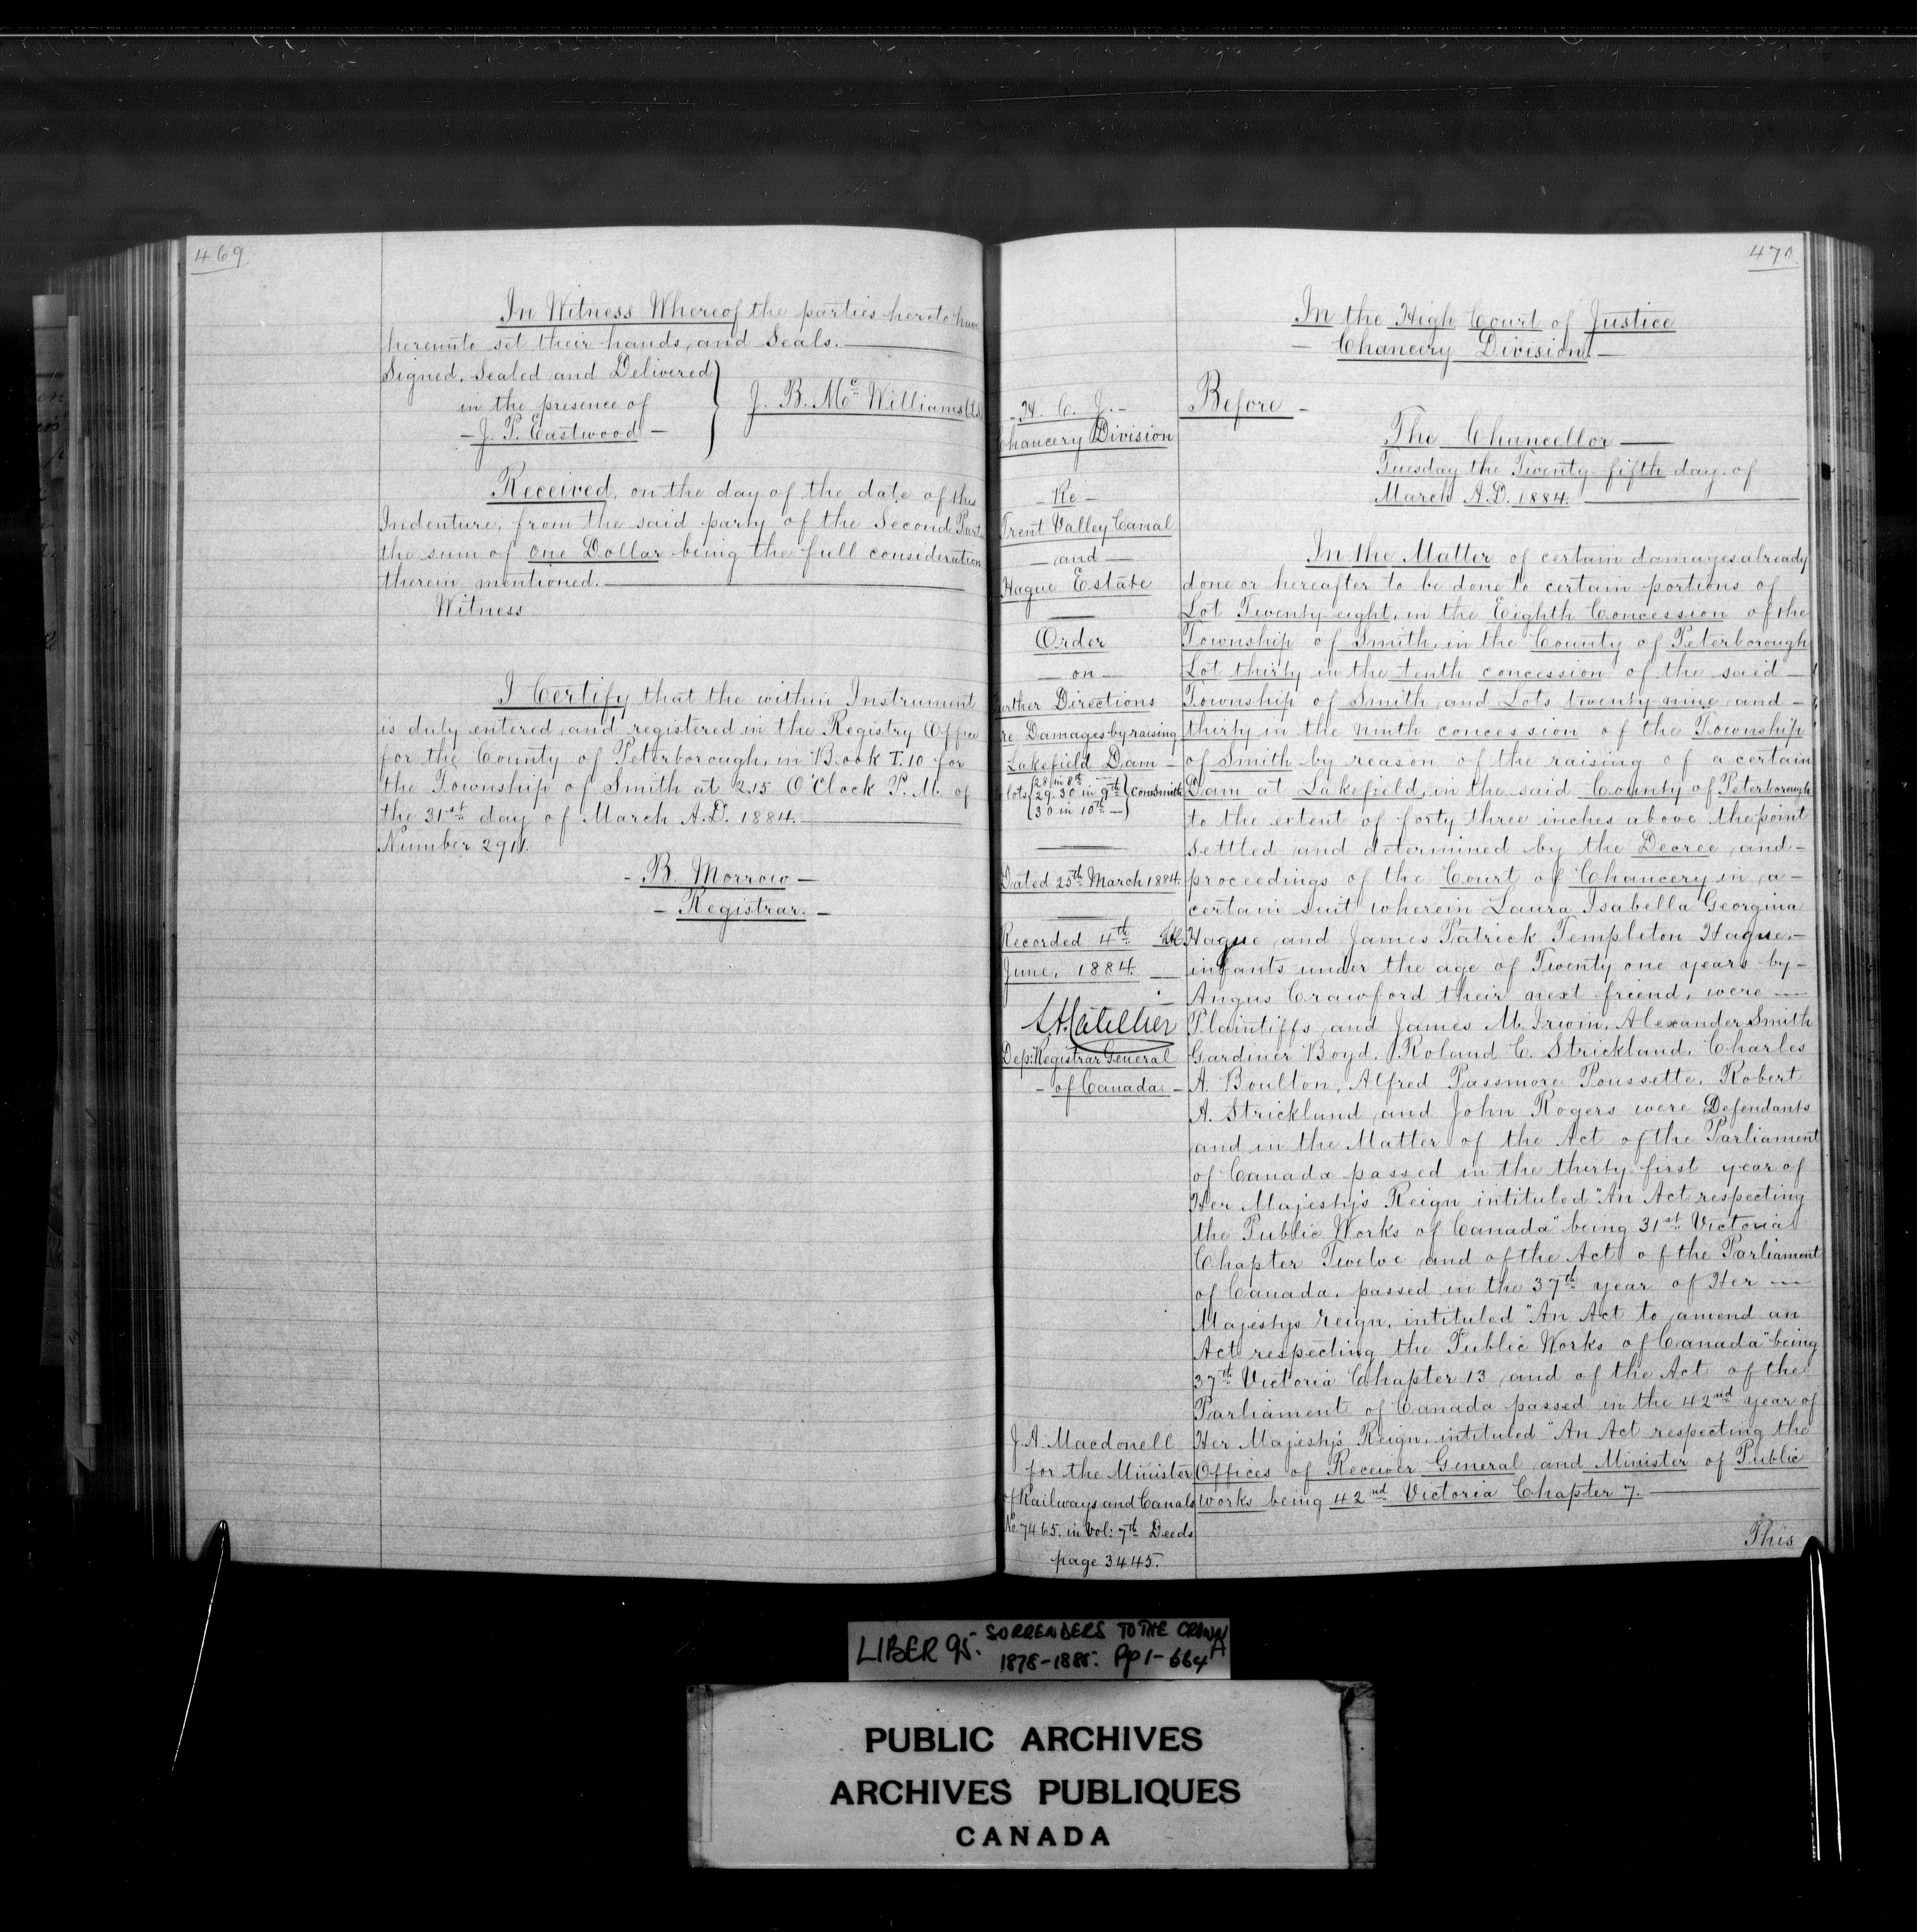 469.
In Witness Whereof the parties hereto have
hereunto set their hands and Seals.
Signed, Sealed and Delivered
in the presence of
- J. P. Eastwood -
J. B. Mc Williams
Received, on the day of the date of this
Indenture, from the said party of the Second Part
the sum of One Dollar being the full consideration
therein mentioned.
Witness
I Certify that the within Instrument
is duly entered and registered in the Registry Office
for the County of Peterborough, in Book T. 10 for
the Township of Smith at 2.15 O'Clock P. M. of
the 31st day of March A.D. 1884.
Number 2911.
- B. Morrow -
- Registrar. -
470.
H. C. J. -
Chancery Division
- Re -
Trent Valley Canal
- and -
Hague Estate
Order
- on -
Further Directions
re Damages by raising
Lakefield Dam -
lots 28 in 8th
29. 30 in 9th Con Smith
30 in 10th
Dated 25th March 1884.
Recorded 4th
June, 1884.
Dep: Registrar General
- of Canada. -
J. A. Macdonell
for the Minister
of Railways and Canals
No 7465. in Vol: 7th Deeds
page 3445.
In the High Court of Justice
- Chancery Division -
Before -
The Chancellor
Tuesday the Twenty fifth day of
March A.D. 1884.
In the Matter of certain damages already
done or hereafter to be done to certain portions of
Lot Twenty-eight, in the Eighth Concession of the
Township of Smith, in the County of Peterborough
Lot thirty in the tenth concession of the said -
Township of Smith and Lots twenty-nine and -
thirty in the ninth concession of the Township
of Smith by reason of the raising of a certain
Dam at Lakefield, in the said County of Peterborough
to the extent of forty three inches above the point
settled and determined by the Decree and -
proceedings of the Court of Chancery in a -
certain suit wherein Laura Isabella Georgina
Hague and James Patrick Templeton Hague, -
infants under the age of Twenty one years by -
Angus Crawford their next friend, were -
Plaintiffs and James M. Irwin, Alexander Smith
Gardiner Boyd, Roland C. Strickland, Charles
A. Boulton, Alfred Passmore Poussette, Robert
A. Strickland and John Rogers were Defendants
and in the Matter of the Act of the Parliament
of Canada passed in the thirty first year of
Her Majesty's Reign intituled "An Act respecting
the Public Works of Canada" being 31st Victoria
Chapter Twelve and of the Act of the Parliament
of Canada, passed in the 37th year of Her -
Majestys reign, intituled "An Act to amend an
Act respecting the Public Works of Canada" being
37th Victoria Chapter 13 and of the Act of the
Parliament of Canada passed in the 42nd year of
Her Majesty's Reign, intituled "An Act respecting the
Offices of Receiver General and Minister of Public
Works being 42nd Victoria Chapter 7.
This
LIBER 95: SORRENDERS TO THE CROWN
1878-1885. Pp 1-664 A
PUBLIC ARCHIVES
ARCHIVES PUBLIQUES
CANADA